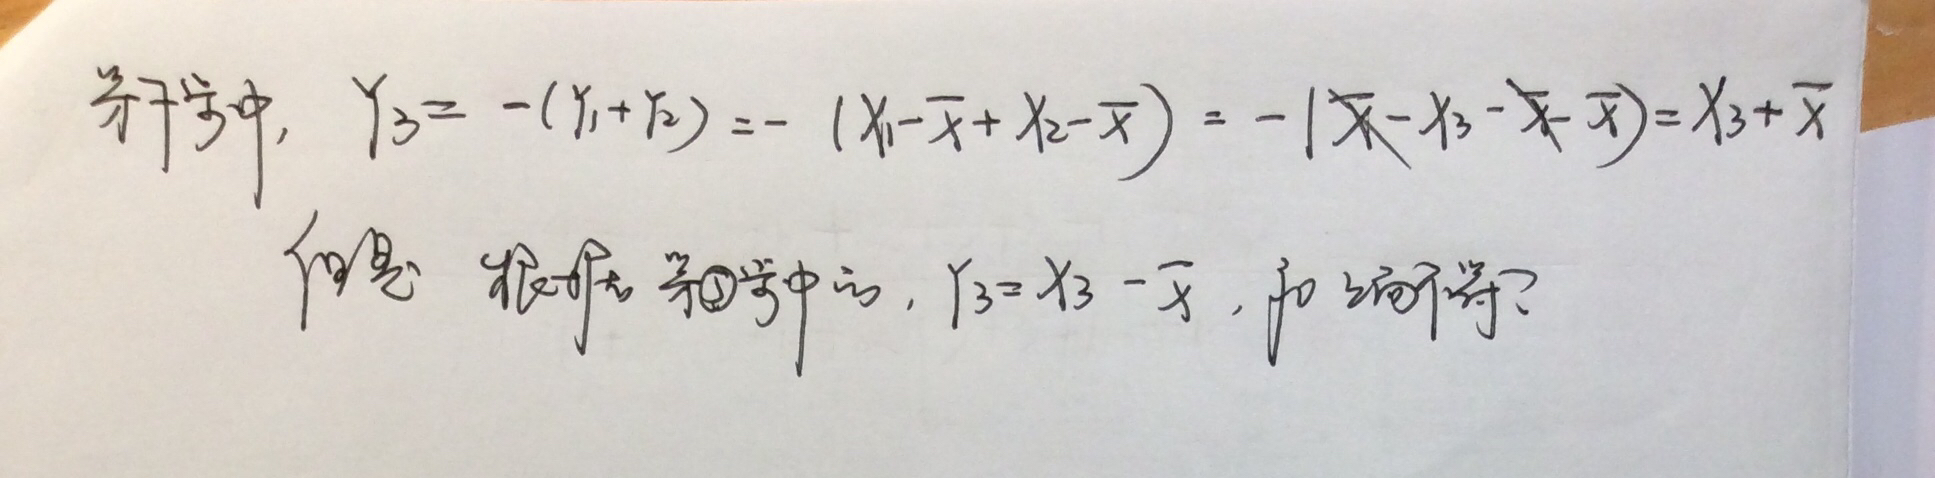 等于号中, Y₃ = -(Y₁+Y₂) = -(X₁-X̄+X₂-X̄) = -(X̄-X₃-X̄-X̄) = X₃+X̄
但是 根据 第②号中的, Y₃=X₃-X̄, 和上面不符?